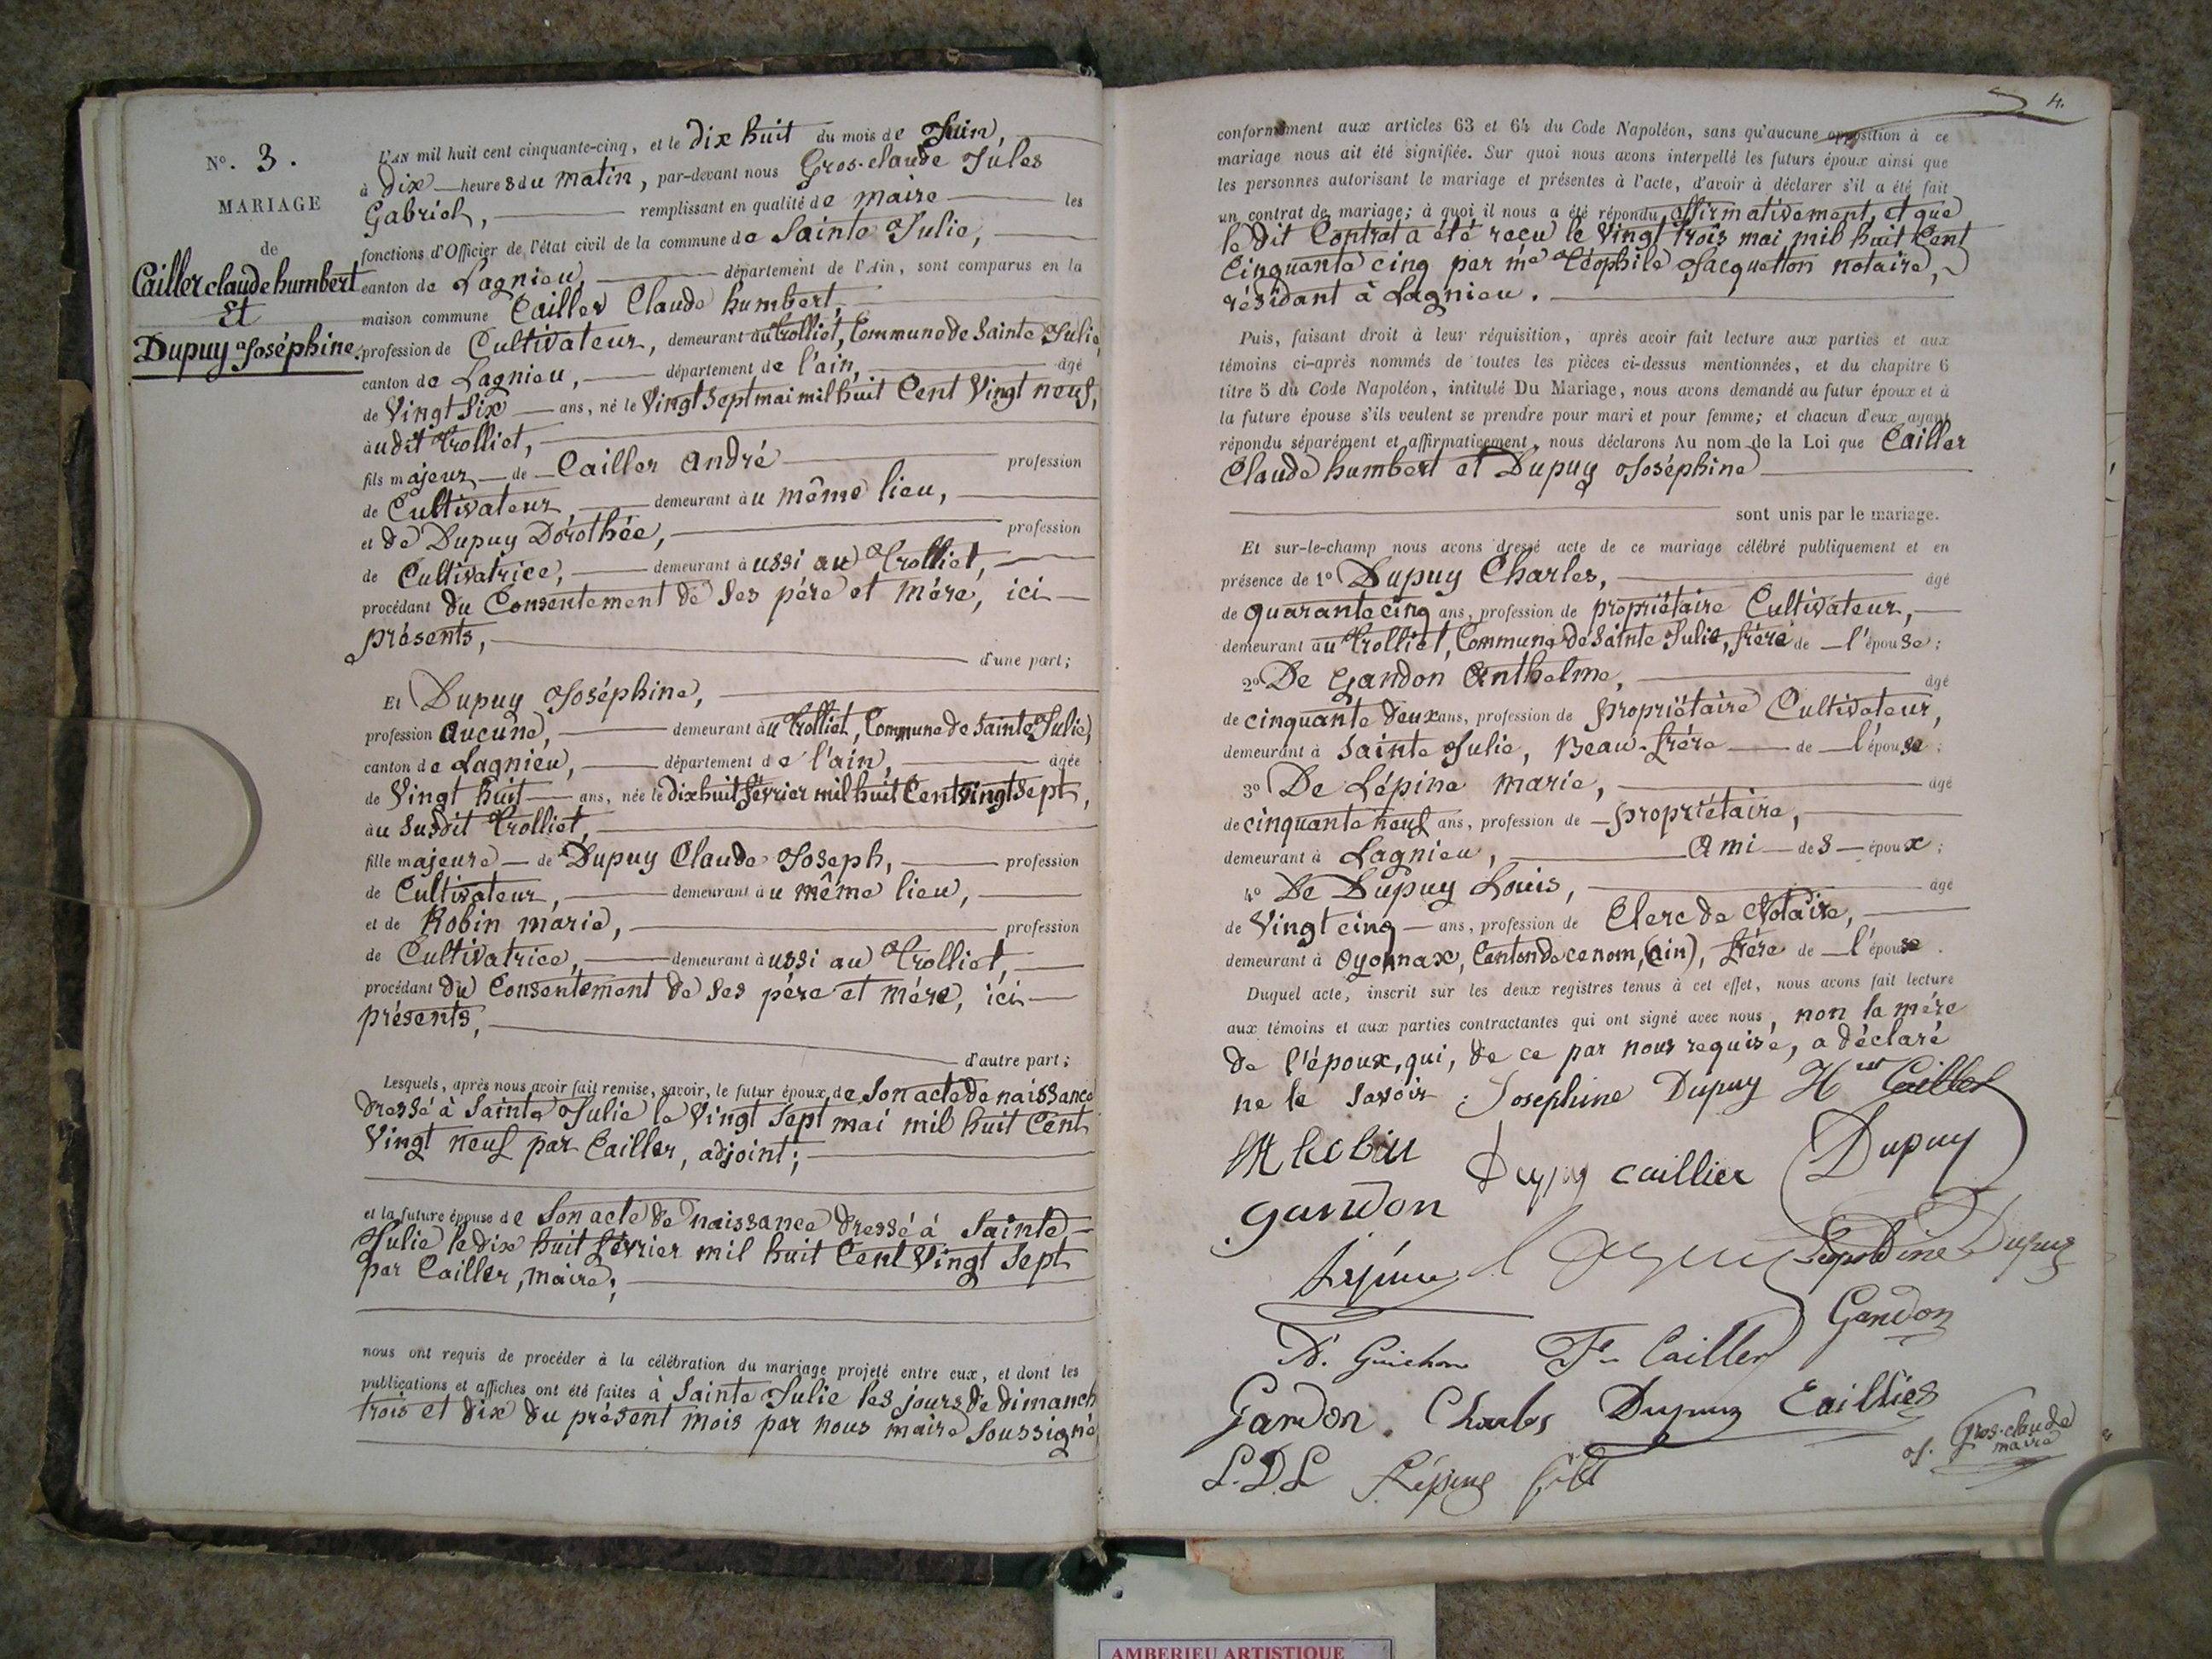 N°. 3.
MARIAGE
de
Cailler claude humbert
Et
Dupuy Joséphine.
L'AN mil huit cent cinquante-cinq, et le dix huit du mois de Juin,
à dix heures du matin, par-devant nous Gros-claude Jules
Gabriel, remplissant en qualité de maire les
fonctions d'Officier de l'état civil de la commune de Sainte Julie,
canton de Lagnieu, département de l'Ain, sont comparus en la
maison commune Cailler Claude humbert,
profession de Cultivateur, demeurant au Trolliet, Commune de Sainte Julie,
canton de Lagnieu, département de l'ain, âgé
de Vingt Six ans, né le Vingt Sept mai mil huit Cent Vingt neuf,
audit Trolliet,
fils majeur de Cailler André profession
de Cultivateur, demeurant au même lieu,
et de Dupuy Dorothée, profession
de Cultivatrice, demeurant aussi au Trolliet,
procédant du Consentement de Ses père et Mère, ici
présents,
d'une part;
Et Dupuy Joséphine,
profession Aucune, demeurant au Trolliet, Commune de Sainte Julie,
canton de Lagnieu, département de l'ain, âgée
de Vingt huit ans, née le dix huit février mil huit Cent vingt Sept,
au Susdit Trolliet,
fille majeure de Dupuy Claude Joseph, profession
de Cultivateur, demeurant au même lieu,
et de Robin marie, profession
de Cultivatrice, demeurant aussi au Trolliet,
procédant du Consentement de Ses père et mère, ici
présents,
d'autre part;
Lesquels, après nous avoir fait remise, savoir, le futur époux de Son acte de naissance
dressé à Sainte Julie le Vingt Sept mai mil huit Cent
Vingt neuf par Cailler, adjoint;
et la future épouse de Son acte de naissance dressé à Sainte
Julie le dix huit février mil huit Cent Vingt Sept
par Cailler, maire;
nous ont requis de procéder à la célébration du mariage projeté entre eux, et dont les
publications et affiches ont été faites à Sainte Julie les jours de dimanch
trois et dix du présent mois par nous maire Soussigné
4.
conformément aux articles 63 et 64 du Code Napoléon, sans qu'aucune opposition à ce
mariage nous ait été signifiée. Sur quoi nous avons interpellé les futurs époux ainsi que
les personnes autorisant le mariage et présentes à l'acte, d'avoir à déclarer s'il a été fait
un contrat de mariage; à quoi il nous a été répondu affirmativement, et que
le dit Contrat a été reçu le Vingt trois mai mil huit Cent
Cinquante cinq par me Téophile Jacquetton notaire,
résidant à Lagnieu.
Puis, faisant droit à leur réquisition, après avoir fait lecture aux parties et aux
témoins ci-après nommés de toutes les pièces ci-dessus mentionnées, et du chapitre 6
titre 5 du Code Napoléon, intitulé Du Mariage, nous avons demandé au futur époux et à
la future épouse s'ils veulent se prendre pour mari et pour femme; et chacun d'eux ayant
répondu séparément et affirmativement, nous déclarons Au nom de la Loi que Cailler
Claude humbert et Dupuy Joséphine
sont unis par le mariage.
Et sur-le-champ nous avons dressé acte de ce mariage célébré publiquement et en
présence de 1° Dupuy Charles, âgé
de quarante cinq ans, profession de propriétaire Cultivateur,
demeurant au Trolliet, Commune de Sainte Julie, frère de l'épouse;
2° De Gandon Anthelme, âgé
de cinquante deux ans, profession de propriétaire Cultivateur,
demeurant à Sainte Julie, Beau-frère de l'épouse;
3° De Lépine marie, âgé
de cinquante neuf ans, profession de propriétaire,
demeurant à Lagnieu, Ami des époux;
4° De Dupuy Louis, âgé
de Vingt cinq ans, profession de Clerc de Notaire,
demeurant à Oyonnax, Canton de ce nom, (ain), frère de l'épouse.
Duquel acte, inscrit sur les deux registres tenus à cet effet, nous avons fait lecture
aux témoins et aux parties contractantes qui ont signé avec nous, non la mère
de l'époux, qui, de ce par nous requise, a déclaré
ne le savoir. Joséphine Dupuy Hert Cailler
M Robin Dupuy caillier Dupuy
gandon
Lépine Léopoldine Dupuy
D. Guichon Fs Cailler Gandon
Gandon. Charles Dupuy Caillier
J. Gros-claude
maire
L.D.L Lépine fils
AMBERIEU ARTISTIQUE